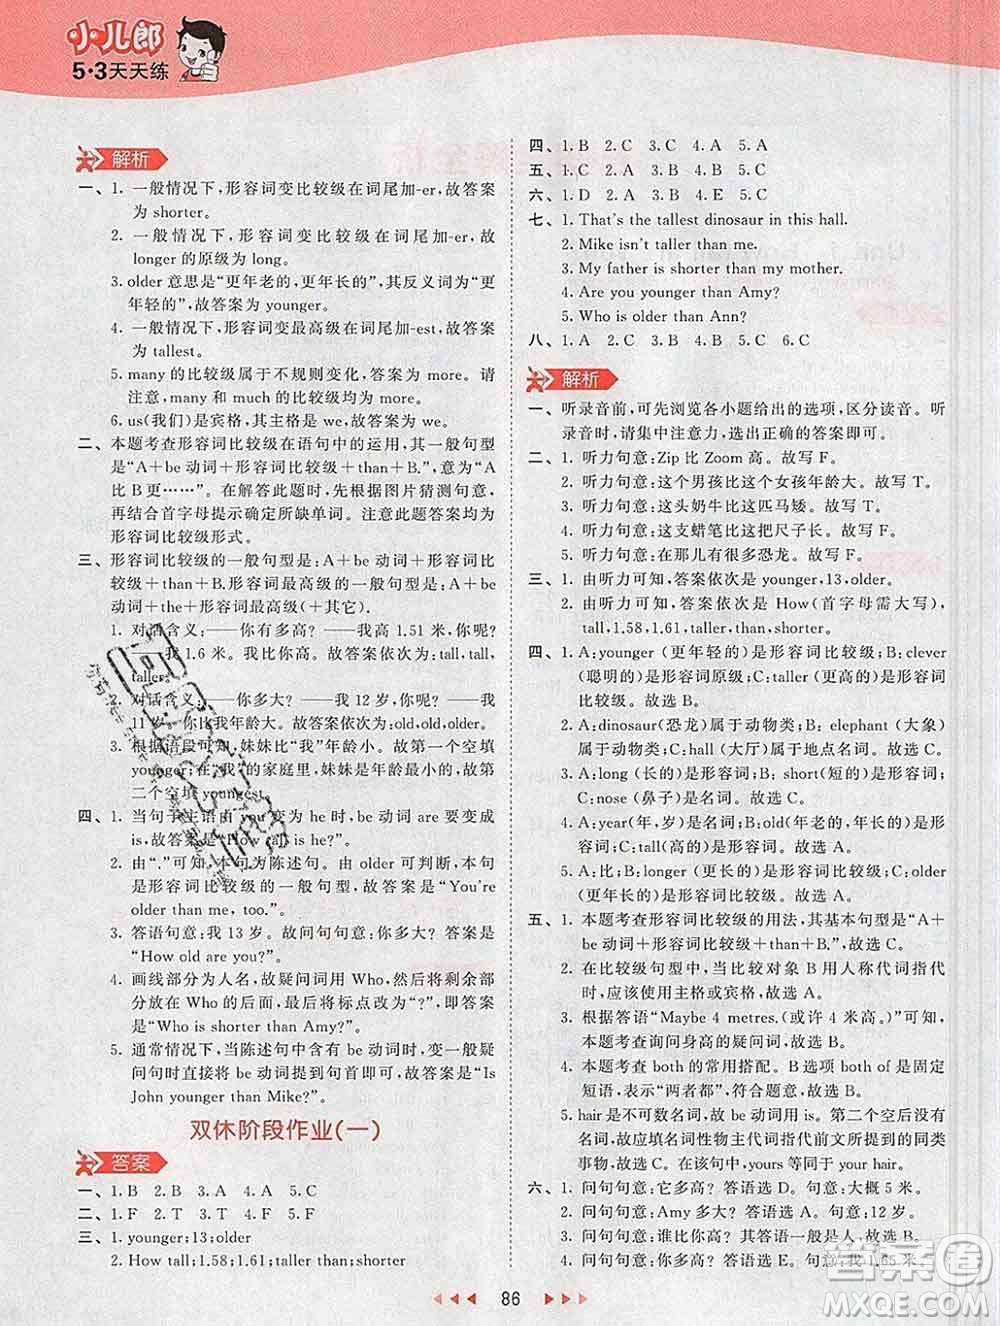 小儿郎
5·3天天练
解析
一、1. 一般情况下,形容词变比较级在词尾加-er,故答案
为 shorter。
2. 一般情况下,形容词变比较级在词尾加-er,故
longer 的原级为 long。
3. older 意思是“更年老的,更年长的”,其反义词是“更
年轻的”,故答案为 younger。
4. 一般情况下,形容词变最高级在词尾加-est,故答案
为 tallest。
5. many 的比较级属于不规则变化,答案为 more。请
注意,many 和 much 的比较级均为 more。
6. us(我们)是宾格,其主格是 we,故答案为 we。
二、本题考查形容词比较级在语句中的运用,其一般句型
是“A+be 动词+形容词比较级+than+B.”,意为“A
比 B 更……”。在解答此题时,先根据图片猜测句意,
再结合首字母提示确定所缺单词。注意此题答案均为
形容词比较级形式。
三、形容词比较级的一般句型是:A+be 动词+形容词比
较级+than+B.形容词最高级的一般句型是:A+be
动词+the+形容词最高级(+其它).
1. 对话含义:——你有多高?——我高 1.51 米,你呢?
——我 1.6 米。我比你高。故答案依次为:tall,tall,
taller。
2. 对话含义:——你多大?——我 12 岁,你呢?——我
11 岁。你比我年龄大。故答案依次为:old,old,older。
3. 根据语段可知,妹妹比“我”年龄小。故第一个空填
younger;在“我”的家庭里,妹妹是年龄最小的。故第
二个空填 youngest。
四、1. 当句子主语由 you 变为 he 时,be 动词 are 要变成
is,故答案是“How tall is he?”。
2. 由“.”可知,本句为陈述句。由 older 可判断,本句
是形容词比较级的一般句型,故答案是“You're
older than me, too.”。
3. 答语句意:我 13 岁。故问句句意:你多大?答案是
“How old are you?”。
4. 画线部分为人名,故疑问词用 Who,然后将剩余部
分放在 Who 的后面,最后将标点改为“?”,即答案
是“Who is shorter than Amy?”。
5. 通常情况下,当陈述句中含有 be 动词时,变一般疑
问句时直接将 be 动词提到句首,故答案是“Is
John younger than Mike?”。
双休阶段作业(一)
答案
一、1. B 2. B 3. A 4. A 5. C
二、1. F 2. T 3. T 4. F 5. F
三、1. younger;13;older
2. How tall;1.58;1.61;taller than;shorter
四、1. B 2. C 3. C 4. A 5. A
五、1. C 2. A 3. B 4. B 5. C
六、1. D 2. A 3. B 4. E 5. C
七、1. That's the tallest dinosaur in this hall.
2. Mike isn't taller than me.
3. My father is shorter than my mother.
4. Are you younger than Amy?
5. Who is older than Ann?
八、1. A 2. C 3. C 4. B 5. C 6. C
解析
一、听录音前,可先浏览各小题给出的选项,区分读音。听
录音时,请集中注意力,选出正确的答案即可。
二、1. 听力句意:Zip 比 Zoom 高。故写 F。
2. 听力句意:这个男孩比这个女孩年龄大。故写 T。
3. 听力句意:这头奶牛比这匹马矮。故写 T。
4. 听力句意:这支蜡笔比这把尺子长。故写 F。
5. 听力句意:在那儿有很多恐龙。故写 F。
三、1. 由听力可知,答案依次是 younger,13,older。
2. 由听力可知,答案依次是 How(首字母需大写),
tall,1.58,1.61,taller,than,shorter。
四、1. A:younger (更年轻的)是形容词比较级;B:clever
(聪明的)是形容词原级;C:taller (更高的)是形容词
比较级。故选 B。
2. A:dinosaur(恐龙)属于动物类;B: elephant (大象)
属于动物类;C:hall (大厅)属于地点名词。故选 C。
3. A:long (长的)是形容词;B: short(短的)是形容词;
C:nose (鼻子)是名词。故选 C。
4. A:year(年,岁)是名词;B:old(年老的,年长的)是形
容词;C:tall(高的)是形容词。故选 A。
5. A:比;B:longer (更长的)是形容词比较级;C:older
(更年长的)是形容词比较级。故选 A。
五、1. 本题考查形容词比较级的用法,其基本句型是“A+
be 动词+形容词比较级+than+B.”,故选 C。
2. 在比较级句型中,当比较对象 B 用人称代词指代
时,应该使用主格或宾格,故选 A。
3. 根据答语“Maybe 4 metres.(或许 4 米高。)”可知,
本题考查询问身高的疑问词,故选 B。
4. 本题考查 both 的常用搭配。B 选项 both of 是固定
短语,表示“两者都”,符合题意,故选 B。
5. hair 是不可数名词,故 be 动词用 is。第二个空后没有
名词,故应填名词性物主代词指代前文所提到的同类
事物,在该句中,yours 等同于 your hair。
六、1. 问句句意:它多高?答语选 D。句意:大概 5 米。
2. 问句句意:Amy 多大?答语选 A。句意:12 岁。
3. 问句句意:谁比你高?其答语一般是人,故选 B。
4. 问句句意:你多高?答语选 E。句意:我 1.65 米。
86
答案圈
MXQE.COM